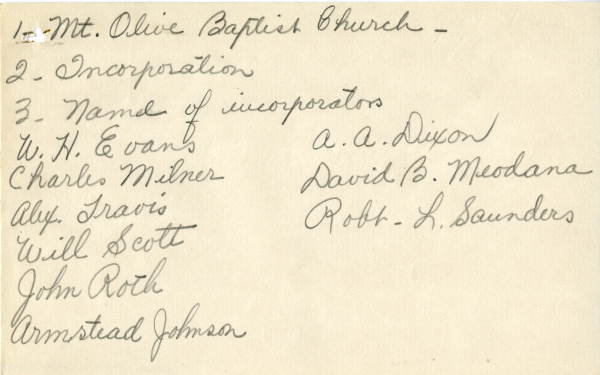 1- Mt. Olive Baptist Church -
2- Incorporation
3- Namd of incorporators
W. H. Evans
Charles Milner
Alex. Travis
Will Scott
John Roth
Armstead Johnson
A. A. Dixon
David B. Meodana
Robt- L. Saunders